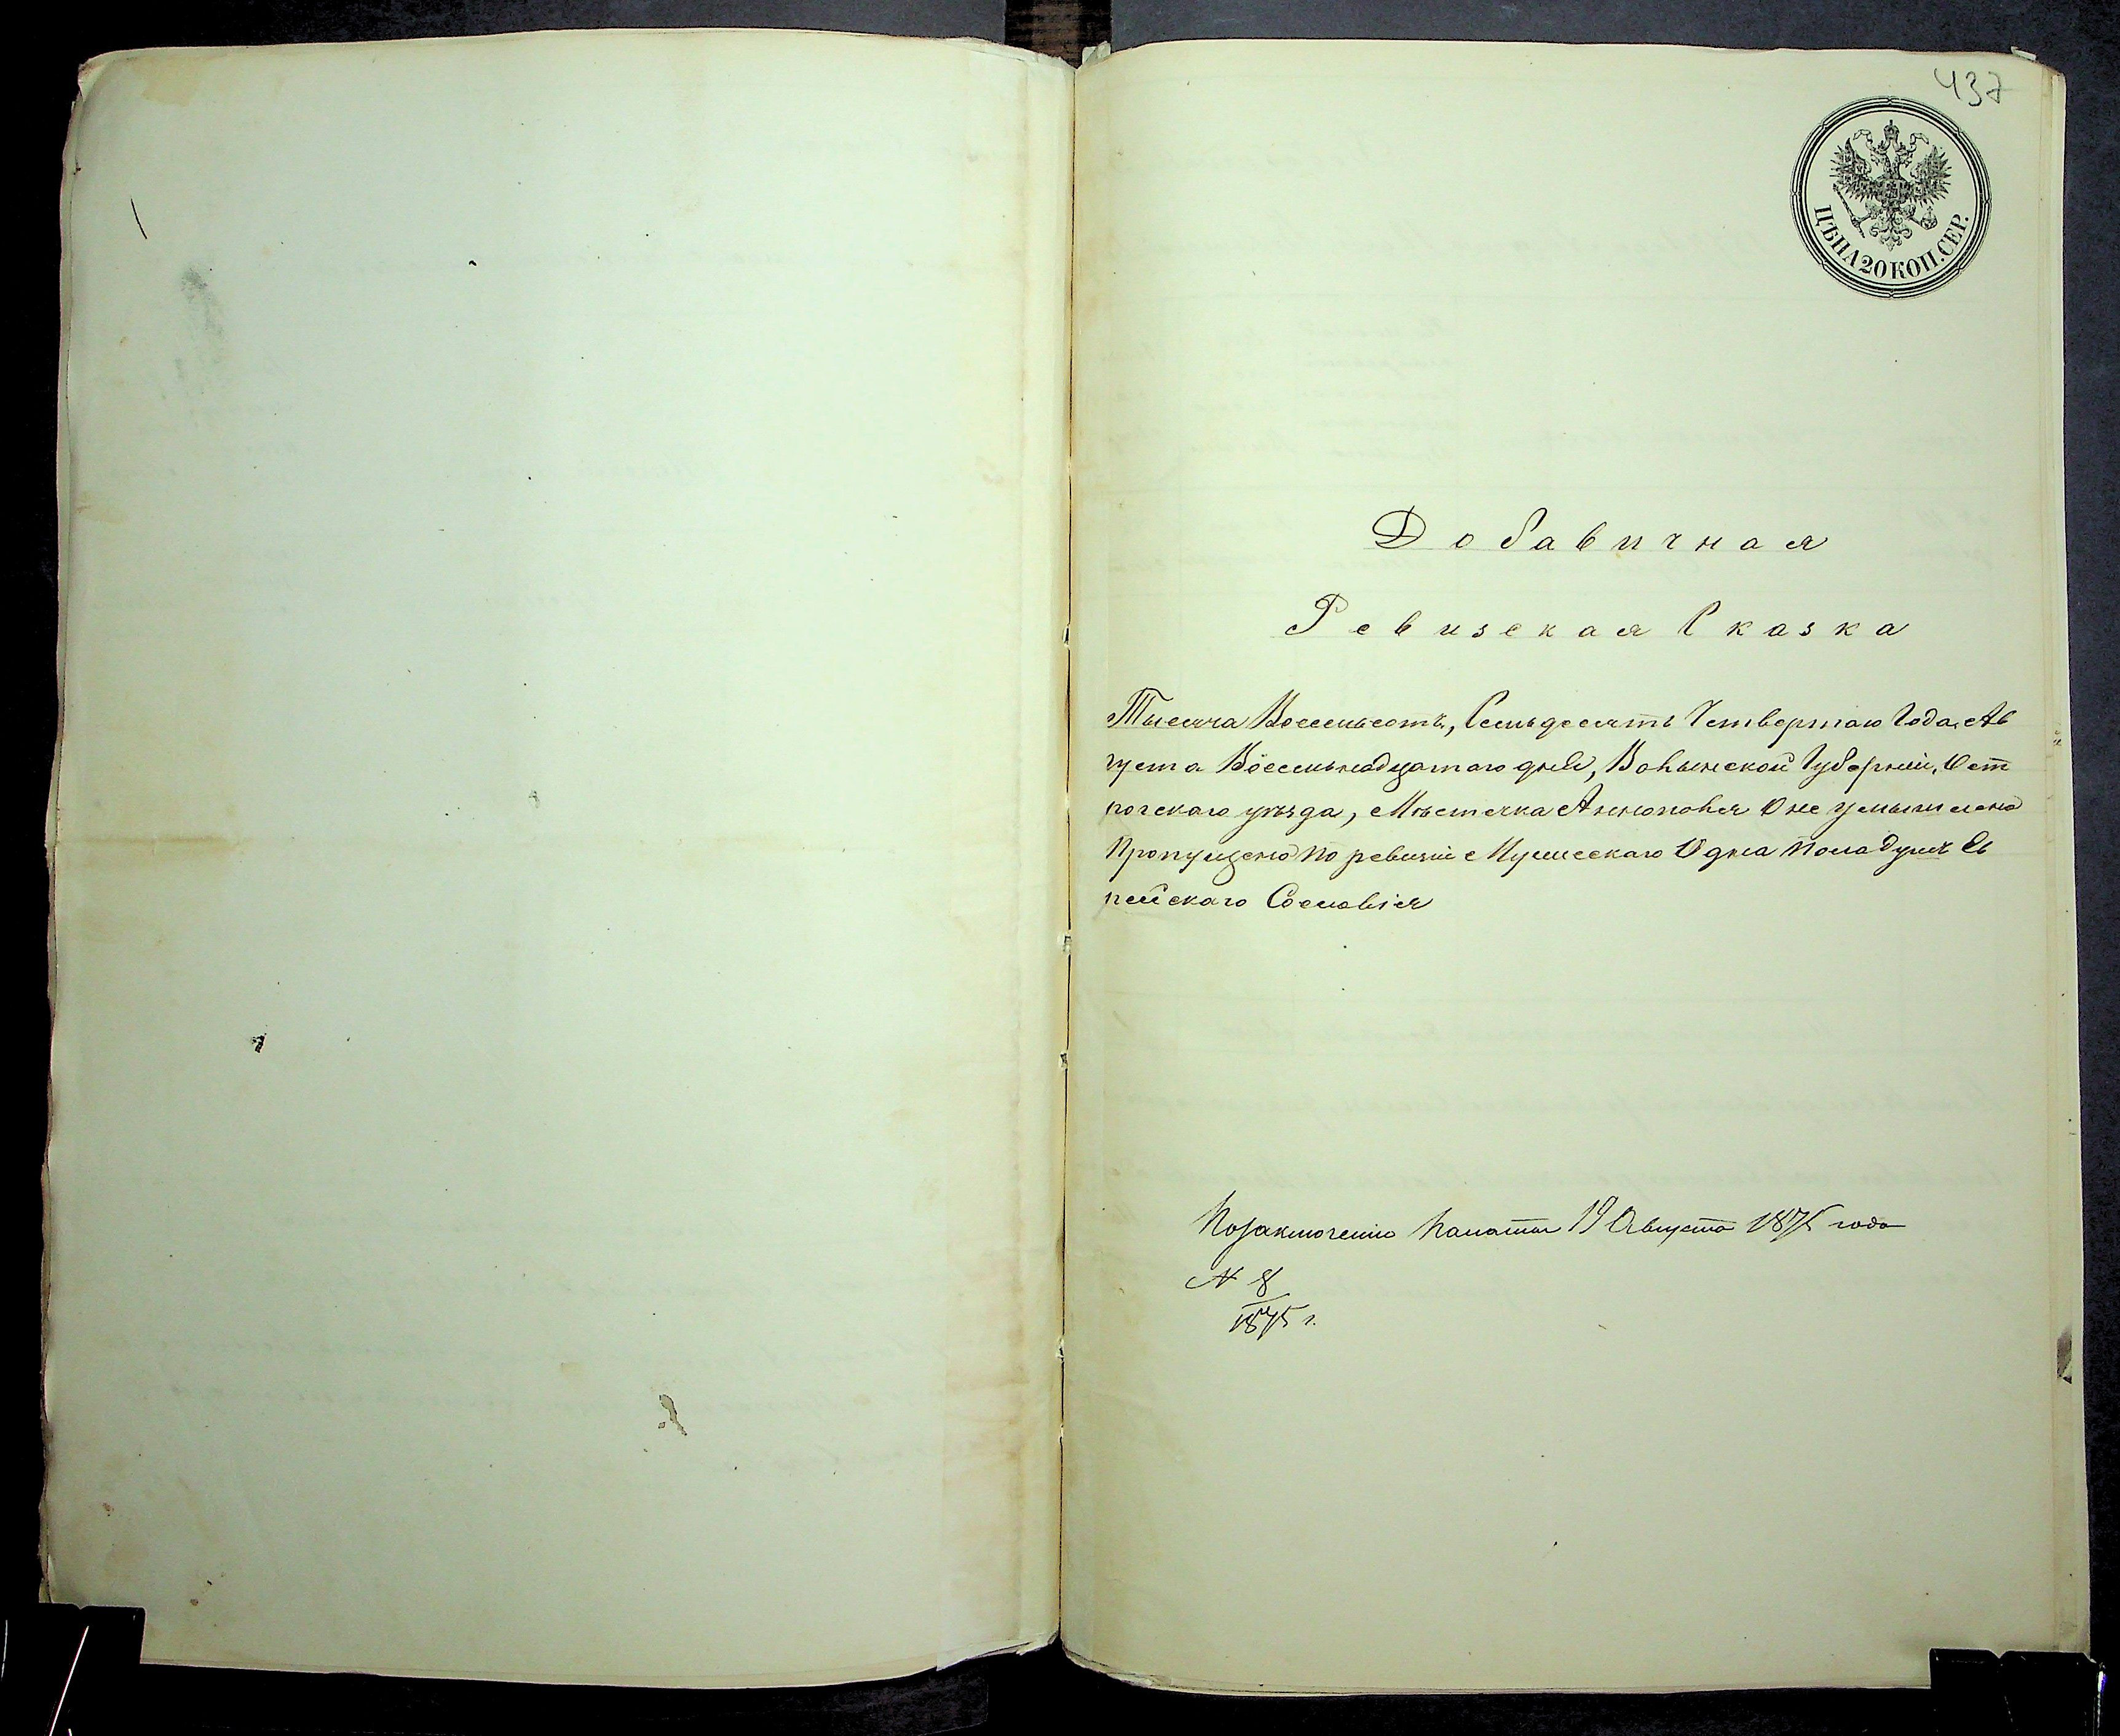 437
ЦѢНА 20 КОП. СЕР.
Добавичная
Ревизская Сказка
Тысяча Восемьсотъ, Семьдесятъ Четвертаго Года, Ав
густа Восемьнадцатаго дня, Волынской Губерніи, Ост
рогскаго уѣзда, Мѣстечка Аннополя О не умышлено
Пропущено по ревизіи Мужескаго Одна пола душъ Ев
рейскаго Сословія
По заключенію Палаты 19 Августа 1875 года
N 8
1875 г.